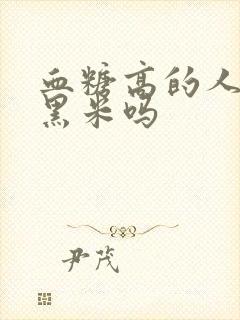 血糖高的人
黑米吗
尹茂